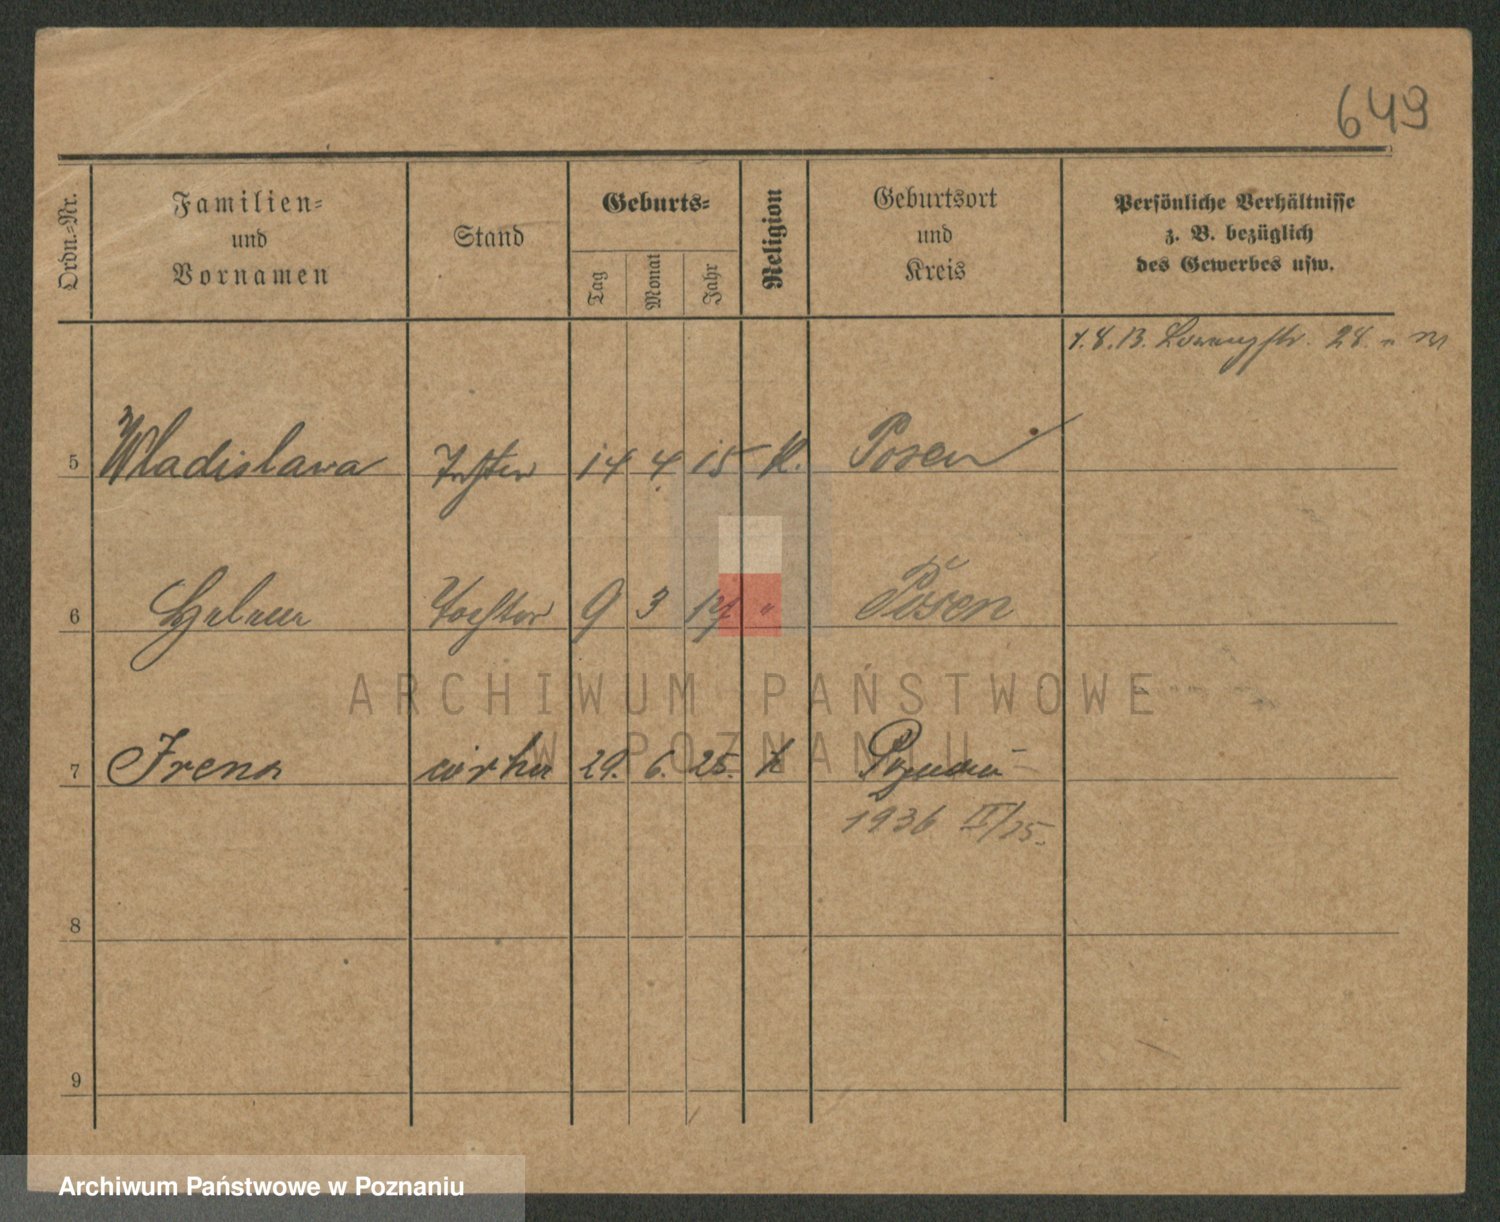 649
Ordn.-Nr.
Familien-
und
Vornamen
Stand
Geburts-
Tag
Monat
Jahr
Religion
Geburtsort
und
Kreis
Persönliche Verhältnisse
z. B. bezüglich
des Gewerbes usw.
28.
5 Wladislava Tochter 14 4 15 K. Posen
6 Helene Tochter 9 3 " Posen
ARCHIWUM PAŃSTWOWE
W POZNANIU
7 Irena córka 29. 6. 25. k Poznań
1936
8
9
Archiwum Państwowe w Poznaniu